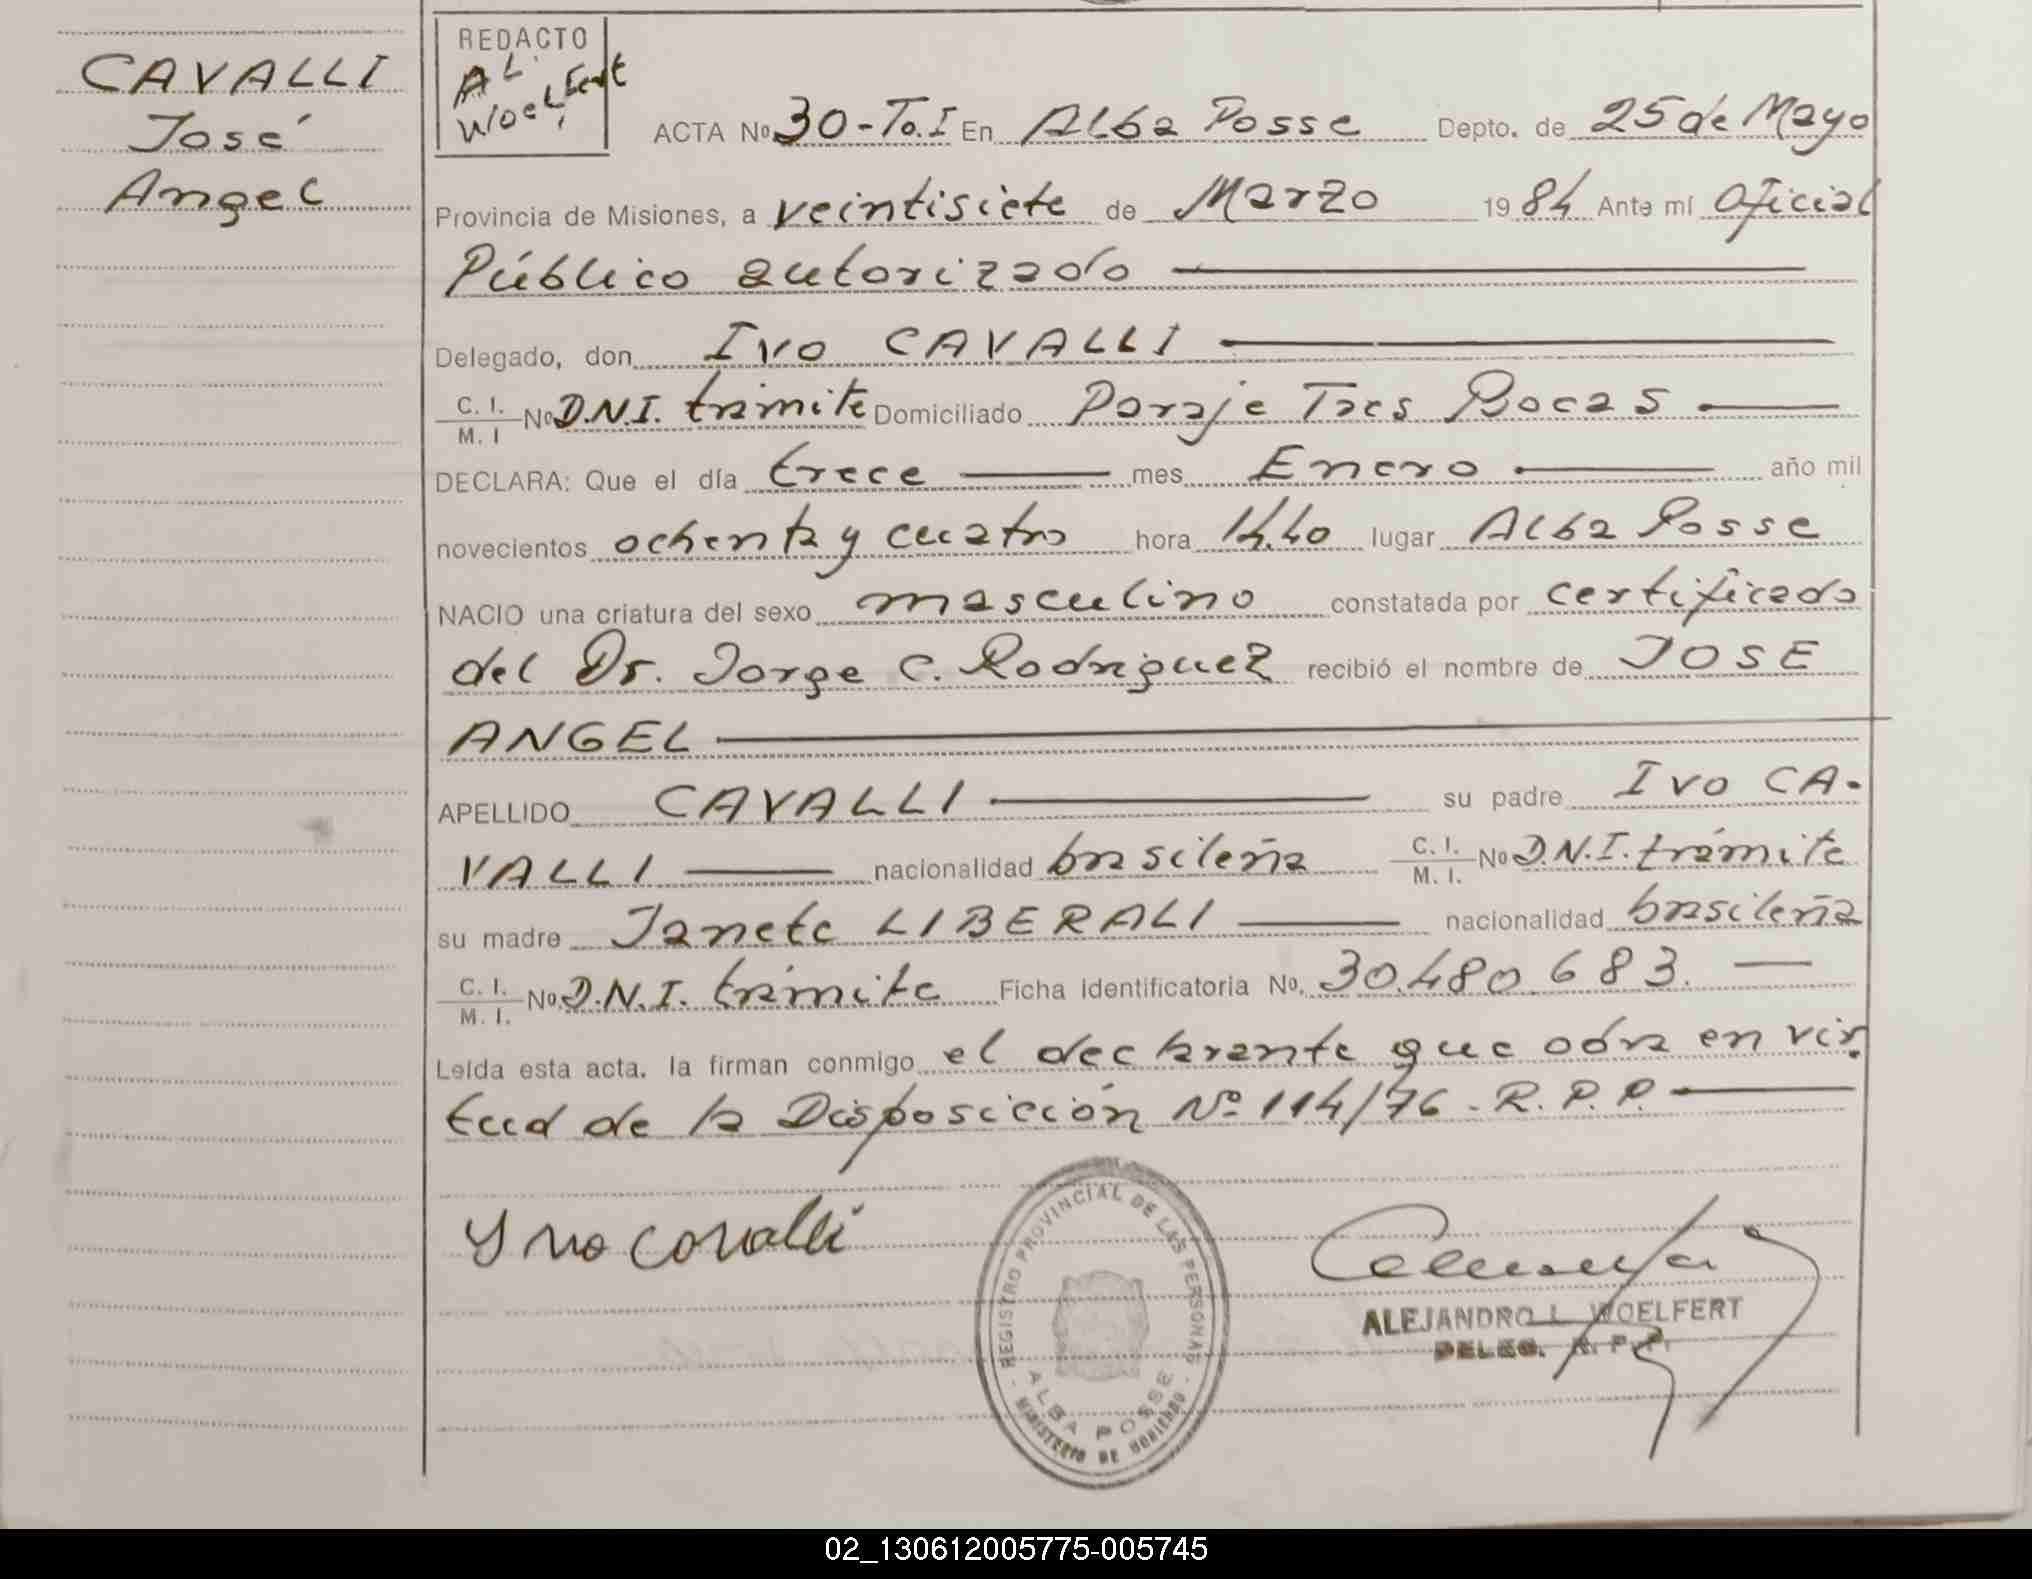 CAVALLI
José
Angel
REDACTO
AL.
Woelfert
ACTA Nº 30-To.I En Alba Posse Depto. de 25 de Mayo
Provincia de Misiones, a veintisiete de Marzo 1984 Ante mí Oficial
Público autorizado
Delegado, don Ivo CAVALLI
C. I. / M. I Nº D.N.I. trámite Domiciliado Paraje Tres Bocas
DECLARA: Que el día trece mes Enero año mil
novecientos ochenta y cuatro hora 14.40 lugar Alba Posse
NACIO una criatura del sexo masculino constatada por certificado
del Dr. Jorge C. Rodriguez recibió el nombre de JOSE
ANGEL
APELLIDO CAVALLI su padre Ivo CA-
VALLI nacionalidad brasileña C. I. / M. I. Nº D.N.I. trámite
su madre Janete LIBERALI nacionalidad brasileña
C. I. / M. I. Nº D.N.I. trámite Ficha identificatoria Nº. 30.480.683.
Leída esta acta, la firman conmigo el declarante que obra en vir-
tud de la Disposición Nº 114/76-R.P.P.
Yvo Cavalli
REGISTRO PROVINCIAL DE LAS PERSONAS
ALBA POSSE
MINISTERIO DE GOBIERNO
ALEJANDRO L. WOELFERT
DELEG. R. P. P.
02_130612005775-005745